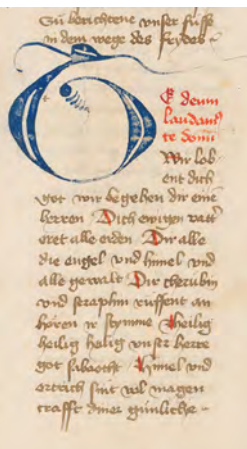 Zü berichtene vnser füsse
in dem wege des frydes
TE deum
laudam9
te domi
Wir lob
ent dich
got wir begehen dir eine
herren Dich ewigen vatt
eret alle erden Dir alle
die engel vnd himel vnd
alle gewalt Dir cherubin
vnd seraphin ruffent an
hören r stymme Heilig
heilig heilig vnser herre
got sabaoth Himel vnd
ertrich sint vol magen
crafft diner günliche